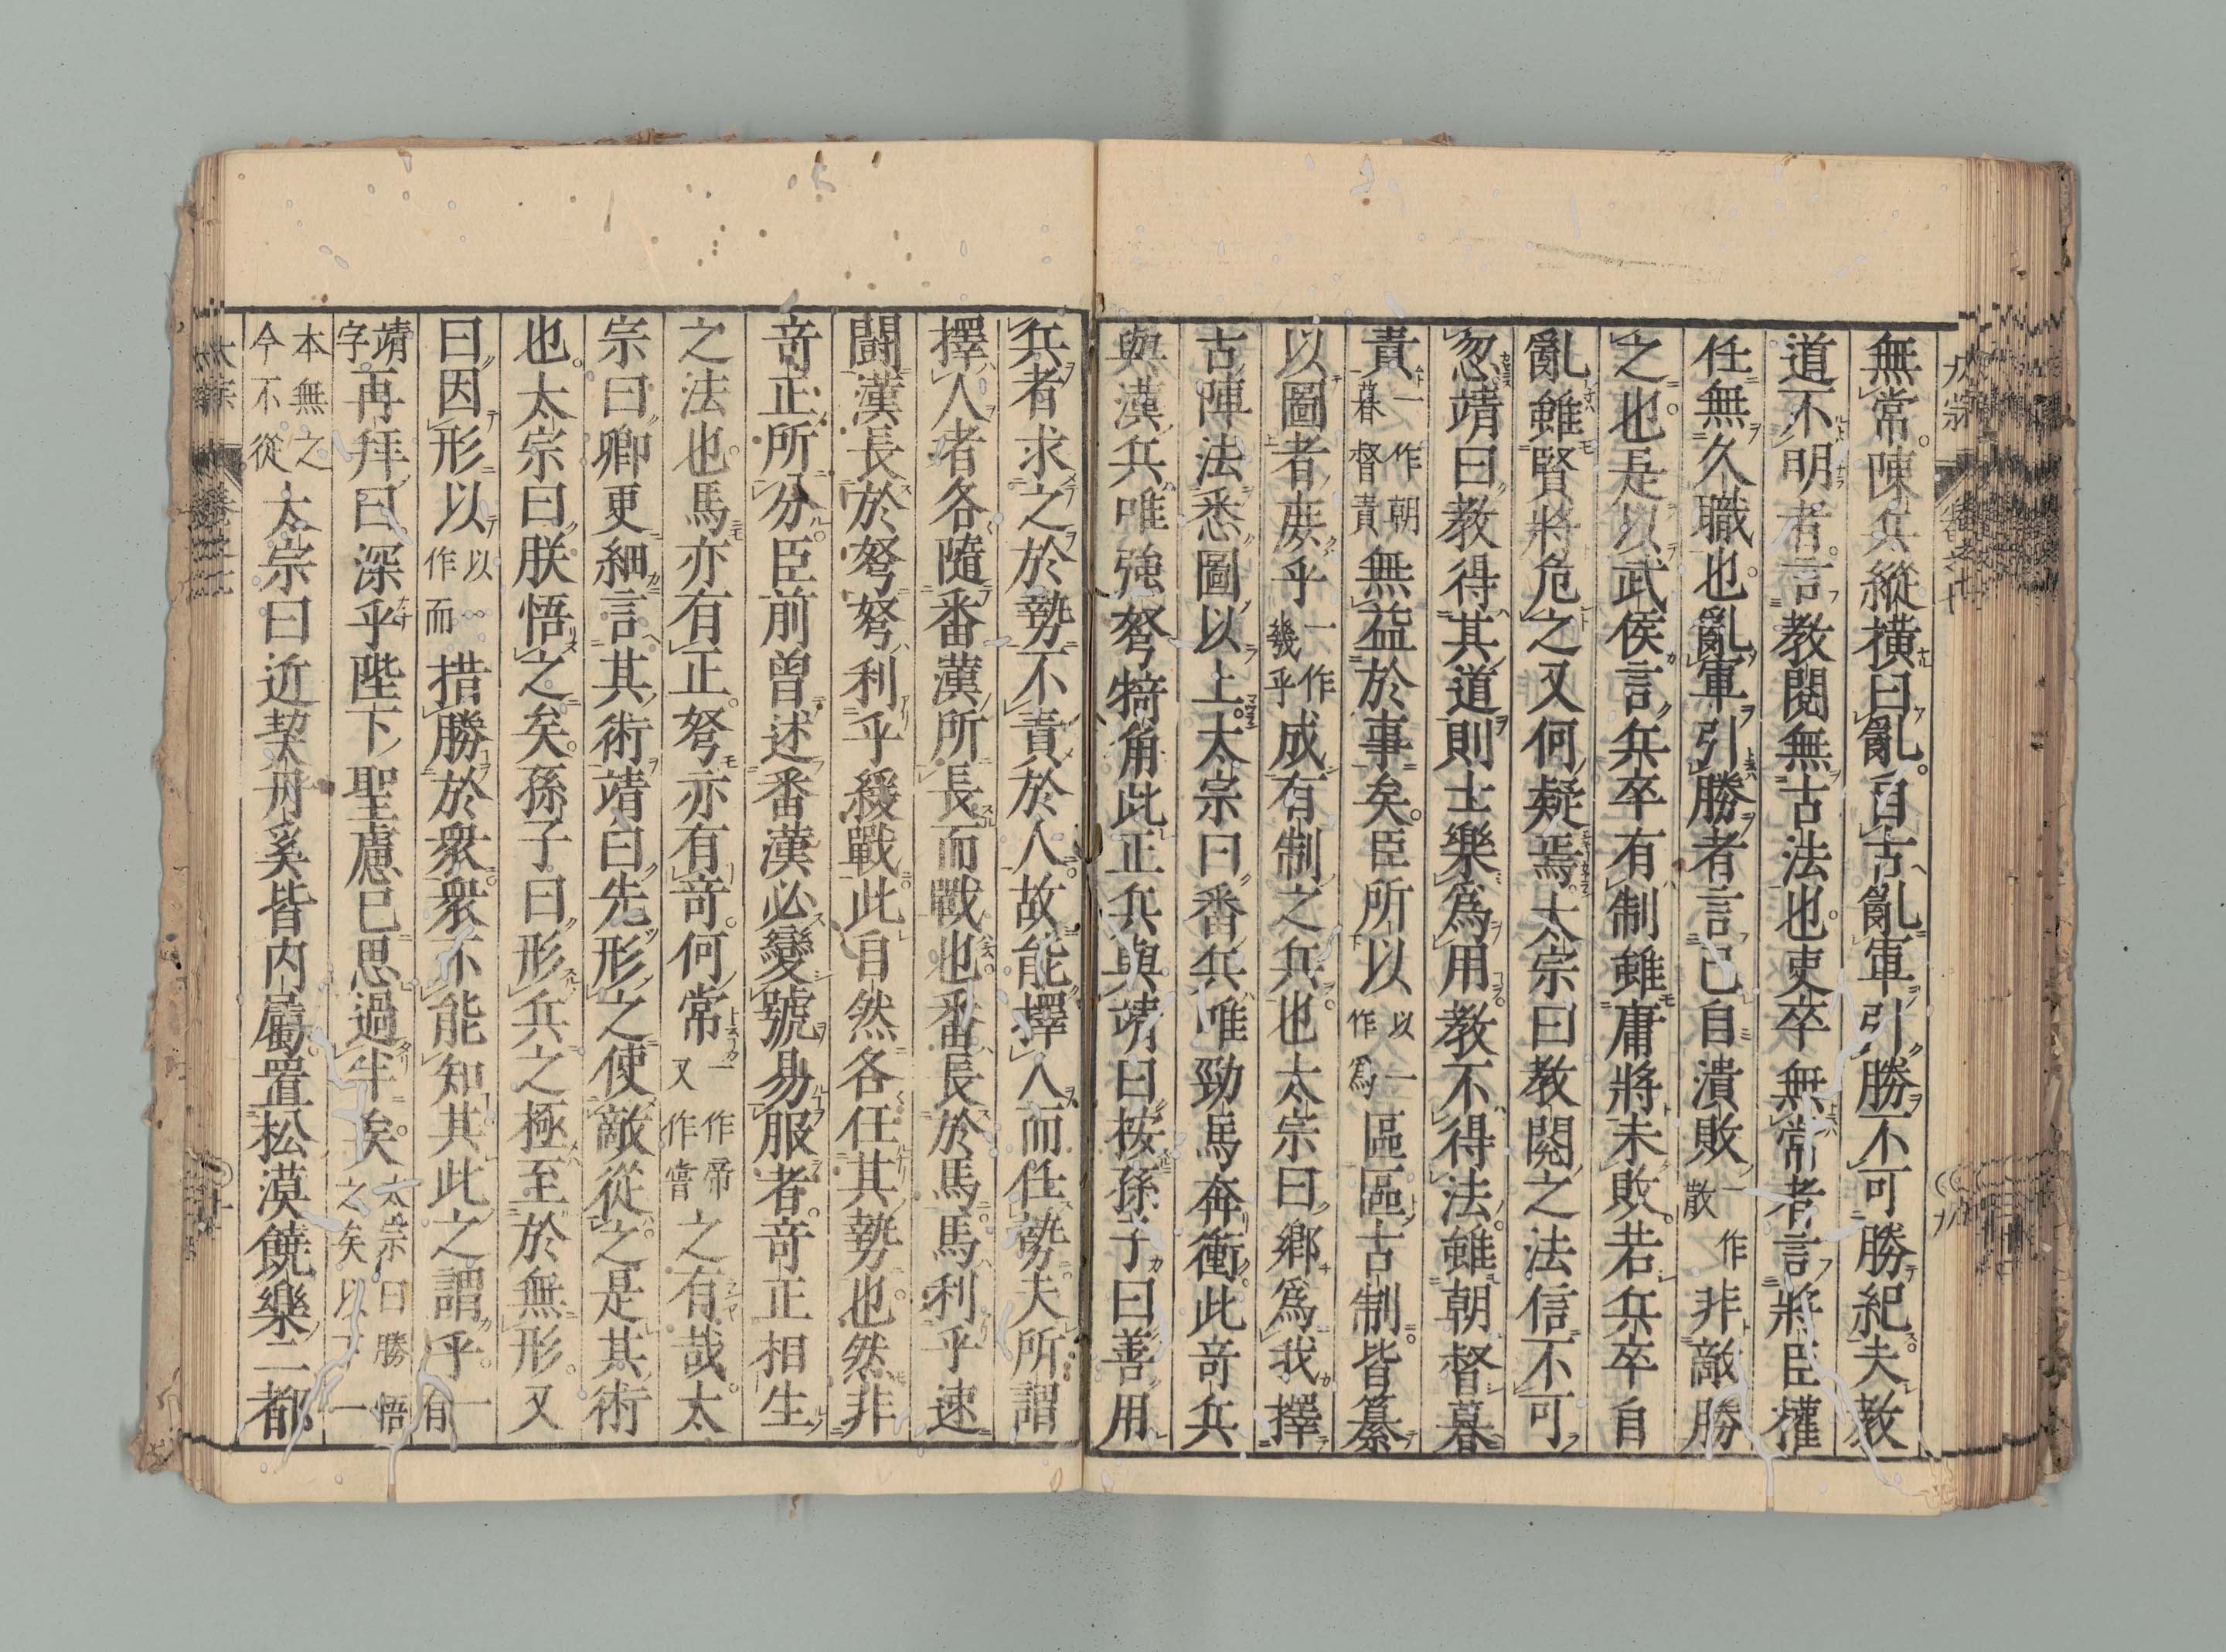 無常陳兵縱横曰亂自古亂軍引勝不可勝紀夫教
道不明者言教閲無古法也吏卒無常者言將臣權
任無久職也亂軍引勝者言己自潰敗一作散非敵勝
之也是以武侯言兵卒有制雖庸將未敗若兵卒自
亂雖賢將危之又何疑焉太宗曰教閲之法信不可
忽靖曰教得其道則士樂爲用教不得法雖朝督暮
責一作朝暮督責無益於事矣臣所以以一作爲區區古制皆纂
以圖者庻乎一作幾乎成有制之兵也太宗曰郷爲我擇
古陣法悉圖以上太宗曰番兵唯勁馬奔衝此竒兵
與漢兵唯強弩犄角此正兵與靖曰按孫子曰善用
兵者求之於勢不責於人故能擇人而任勢夫所謂
擇人者各隨番漢所長而戰也番長於馬馬利乎速
鬪漢長於弩弩利乎緩戰此自然各任其勢也然非
竒正所分臣前曾述番漢必變號易服者竒正相生
之法也馬亦有正弩亦有竒何常一作帝又作嘗之有哉太
宗曰卿更細言其術靖曰先形之使敵從之是其術
也太宗曰朕悟之矣孫子曰形兵之極至於無形又
曰因形以以一作而措勝於衆衆不能知其此之謂乎一有
靖字再拜曰深乎陛下聖慮已思過半矣太宗曰勝悟之矣以下一
本無之今不從太宗曰近契丹奚皆内屬置松漠饒樂二都